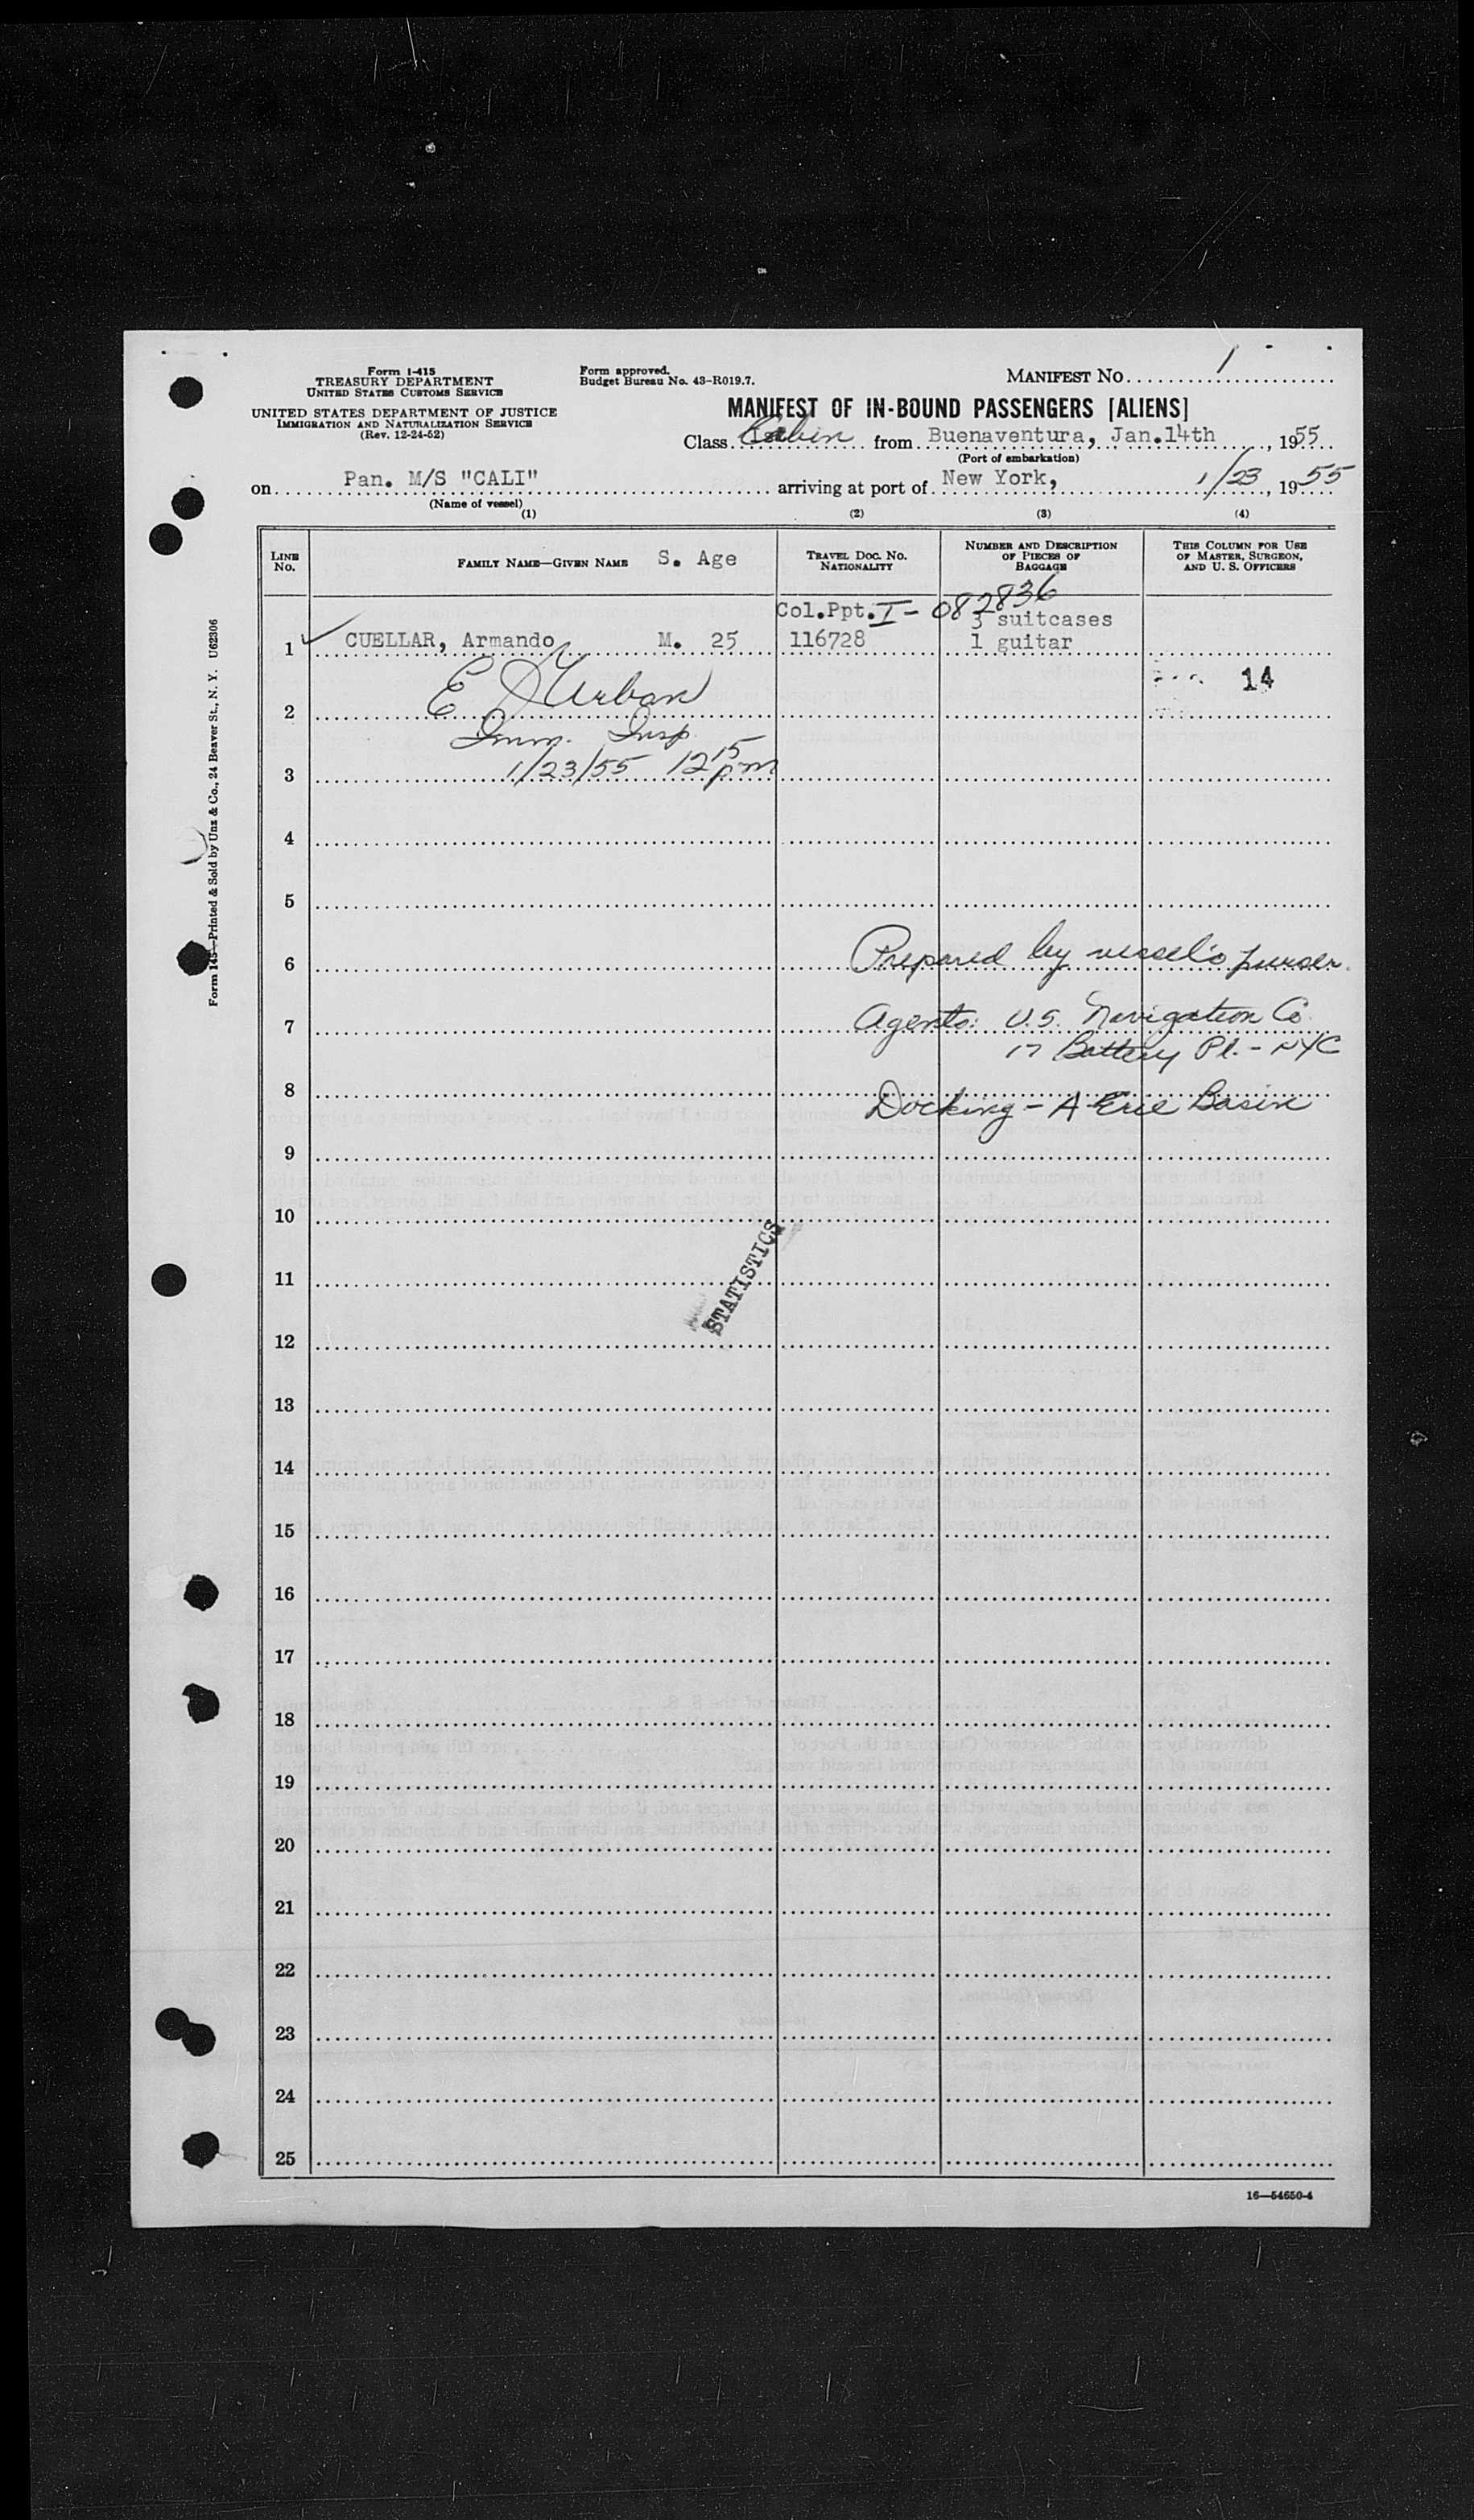 Form I-415
TREASURY DEPARTMENT
UNITED STATES CUSTOMS SERVICE
UNITED STATES DEPARTMENT OF JUSTICE
IMMIGRATION AND NATURALIZATION SERVICE
(Rev. 12-24-52)
Form approved.
Budget Bureau No. 43-R019.7.
MANIFEST NO. 1
MANIFEST OF IN-BOUND PASSENGERS [ALIENS]
Class Cabin from Buenaventura, Jan.14th, 1955
(Port of embarkation)
on Pan. M/S "CALI" arriving at port of New York, 1/23, 1955
(Name of vessel)
(1) (2) (3) (4)
LINE NO. FAMILY NAME—GIVEN NAME S. Age TRAVEL DOC. NO. NATIONALITY NUMBER AND DESCRIPTION OF PIECES OF BAGGAGE THIS COLUMN FOR USE OF MASTER, SURGEON, AND U. S. OFFICERS
Col.Ppt. I-082836 3 suitcases
1 CUELLAR, Armando M. 25 116728 1 guitar
E J Urban
14
2
Imm. Insp.
3 1/23/55 12 15 pm
4
5
6 Prepared by vessel's purser.
7 Agents: U.S. Navigation Co
17 Battery Pl. - NYC
8 Docking - A Erie Basin
9
10
11
STATISTICS
12
13
14
15
16
17
18
19
20
21
22
23
24
25
16—54650-4
Form 145—Printed & Sold by Unz & Co., 24 Beaver St., N. Y. U62306